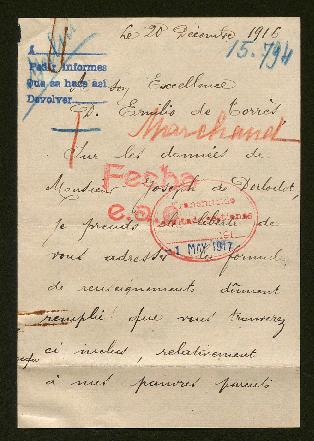 Le 20 Décembre 1916
15.794
A
Pedir informes
Que se hace así
Devolver
A son Excellence
D. Emilio de Torrès
Marchand
Sur les données de
Fecha
Monsieur Joseph de Dorlodot,
e.s.
je prends la liberté de
1 MAY 1917
vous adresser les formules
de renseignements dûment
remplies que vous trouverez
ci inclus, relativement
à mes pauvres parents